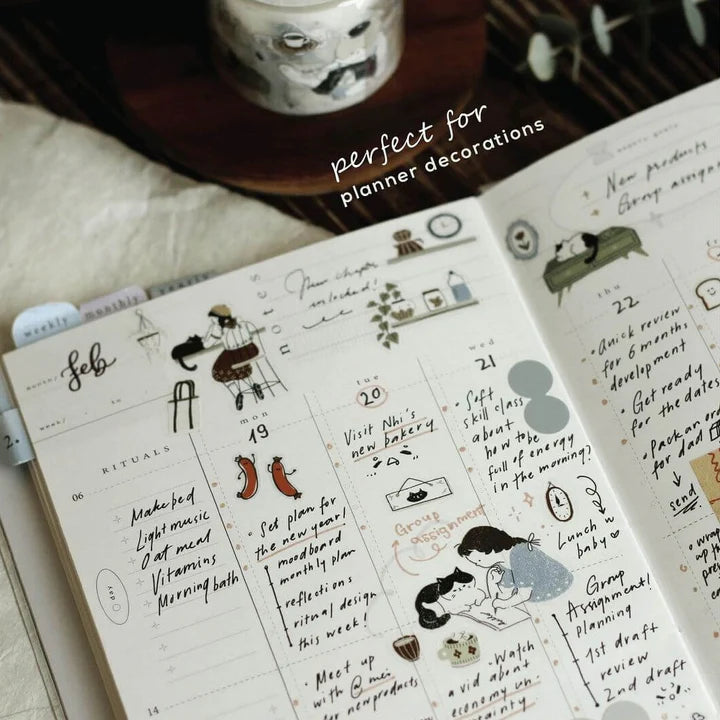 perfect for
planner decorations
weekly
monthly
yearly
month/
feb
week/
to
2.
notes
New chapter
unlocked!
RITUALS
06
Make bed
Light music
Oat meal
Vitamins
Morning bath
14
mon
19
Set plan for
the new year!
moodboard
monthly plan
reflections
ritual design
this week!
Meet up
with @mei
for new products
tue
20
Visit Nhi's
new bakery
Group
assignment
Watch
a vid about
economy un-
certainty
wed
21
Soft
skill class
about
how to be
full of energy
in the morning?
Lunch w
baby
Group
Assignment!
planning
1st draft
review
2nd draft
New products
Group assign
thu
22
Quick review
for 6 months
development
Get ready
for the dates
Pack an or
for dad
send
wrap
up th
prev